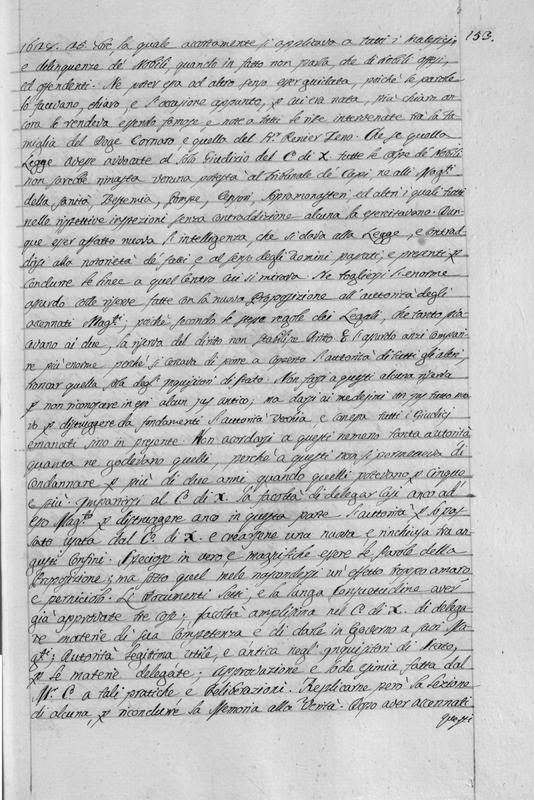 133.
1628. 25. Sbre la quale accortamente si applicava a tutti i Maleficj
e delinquenze de' Nobili, quando in fatto non parla, che di Nobili offesi,
ed offendenti. Ne poter era ad altro senso esser guidata, poiche le parole
lo facevano, chiaro, e l'occasione appunto, p cui era nata, più chiaro an
cora lo rendeva essendo famose e note a tutti le risse intervenute tra la Fa
miglia del Doge Cornaro e quella del Kr. Renier Zeno. Che se quella
Legge avesse avvocate al solo Giudizio del C di X. tutte le Colpe de' Nobili
non sarebbe rimasta veruna potestà al Tribunale de' Capi, ne alli Magti
della Sanità, Bestemia, Pompe, Esposti, Sopramonasterj ed altri i quali tutti
nelle rispettive inspezioni senza contraddizione alcuna la esercitavano. Dun
que esser affatto nuova l'intelligenza, che si dava alla Legge, e contrad
dirsi alla notorietà de' fatti e al senso degli Uomini passati, e presenti p
condurre le linee a quel Centro cui si mirava. Ne togliersi l'enorme
assurdo colle riserve fatte con la nuova Proposizione all'autorità degli
accennati Magti; poiche secondo le stesse regole dei Legali, che tanto pia
cevano ai due, la riserva del diritto non stabilisce diritto. E l'assurdo anzi compari
re più enorme perché si cercava di porre a coperto l'autorità di tutti gli altri,
troncar quella sola degl'Inquisitori di Stato. Non farsi a questi alcuna riserva
p non riconoscere in essi alcun jus antico; ma darsi ai medesimi un jus tutto nuo
vo p distruggere da fondamenti l'autorità Vecchia, e con essa tutti i Giudicj
emanati sino in presente. Non accordarsi a questi nemeno tanta autorità
quanta ne godevano quelli, perché a questi non si permetteva di
Condannare p più di due anni, quando quelli potevano p Cinque
e più. Impedirsi al C di X. la facoltà di delegar Casi anco ad
essi Magti p distruggere anco in questa parte l'autorità p lo pas
sato usata dal C di X. e crearsene una nuova e rinchiusa tra an
gusti Confini. Speciose in vero e magnifiche essere le parole della
Proposizione; ma sotto quel mele nascondersi un'effetto troppo amaro
e pernicioso. Li Documenti letti, e la lunga Consuetudine aver
già approvate tre Cose; facoltà amplissima nel C di X. di delega
re materie di sua Competenza e di darle in Governo a suoi Ma
gti; Autorità legitima, utile, e antica negl'Inquisitori di Stato,
p le materie delegate; Approvazione e lode esimia fatta dal
M. C a tali pratiche e Deliberazioni. Replicarne però la Lezione
di alcuna, p ricondurre la Memoria alla Verità. Dopo aver accennati
questi